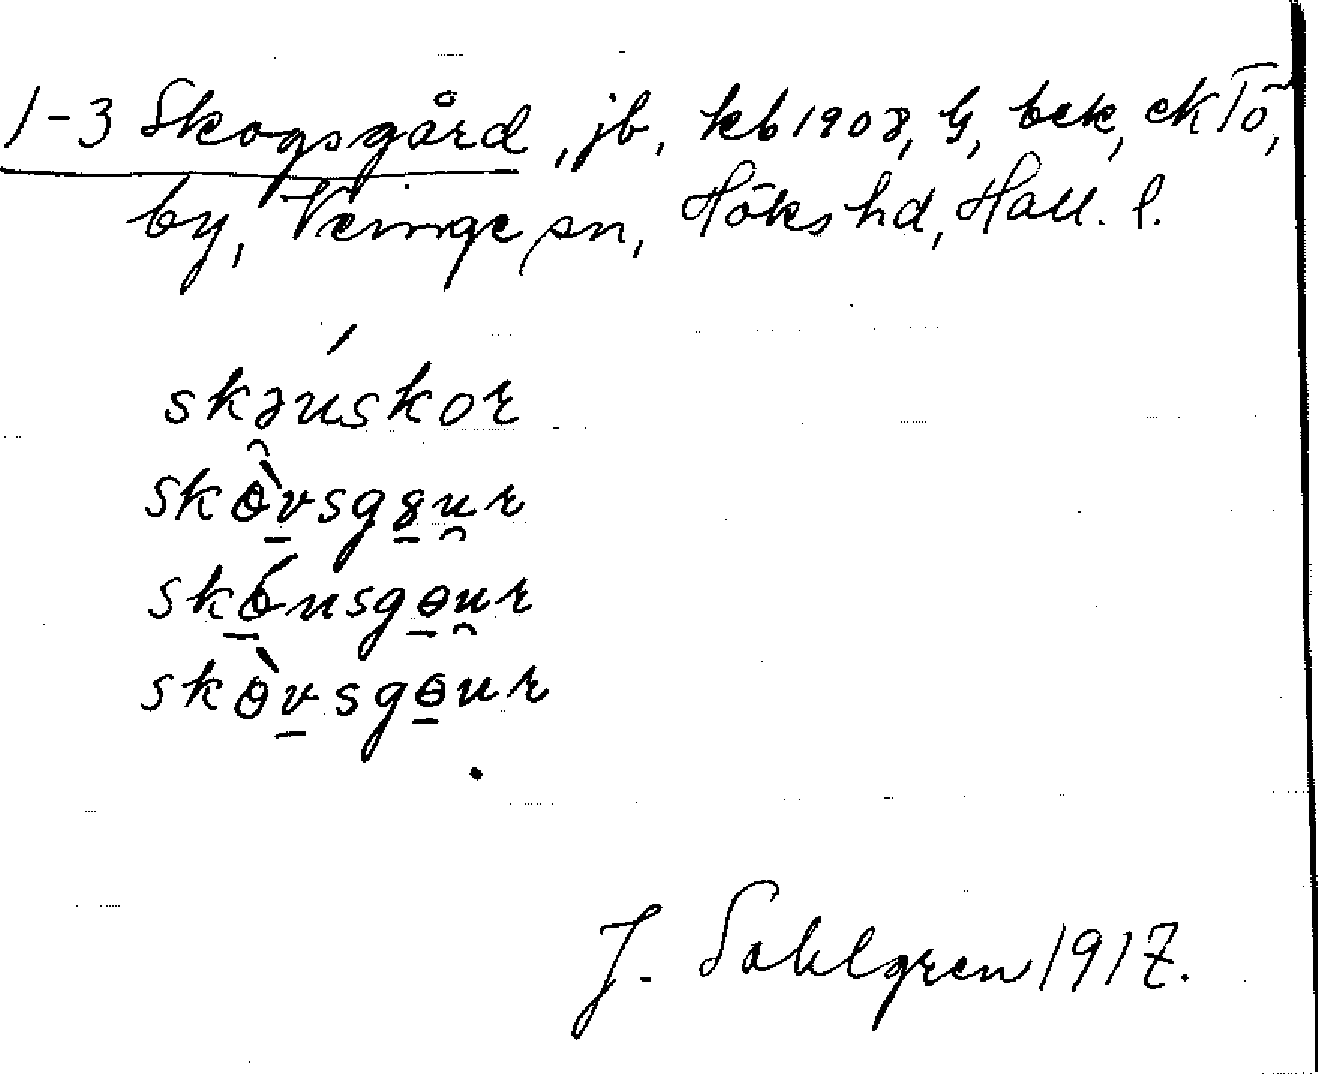 1-3 Skogsgård, jb, kb 1908, G, bek, ekTö,
by, Veinge sn, Höks hd, Hall. l.
skəuskor
skɵ̀vsgɵur
skɵ́usgɵur
skɵ̀vsgɵur
J. Sahlgren 1917.